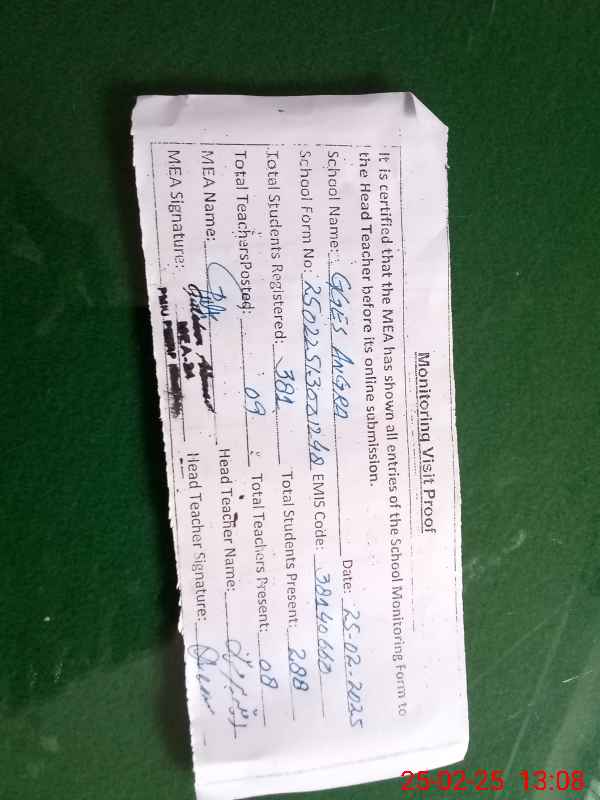 Monitoring Visit Proof
It is certified that the MEA has shown all entries of the School Monitoring Form to
the Head Teacher before its online submission.
Date: 25-02-2025
School Name: GGES ANGRA
School Form No: EMIS Code:
Total Students Registered: 381 Total Students Present: 288
Total TeachersPosted: 09 Total Teachers Present: 08
MEA Name: Head Teacher Name:
MEA Signature: Head Teacher Signature:
MEA
PMIU
25-02-25 13:08